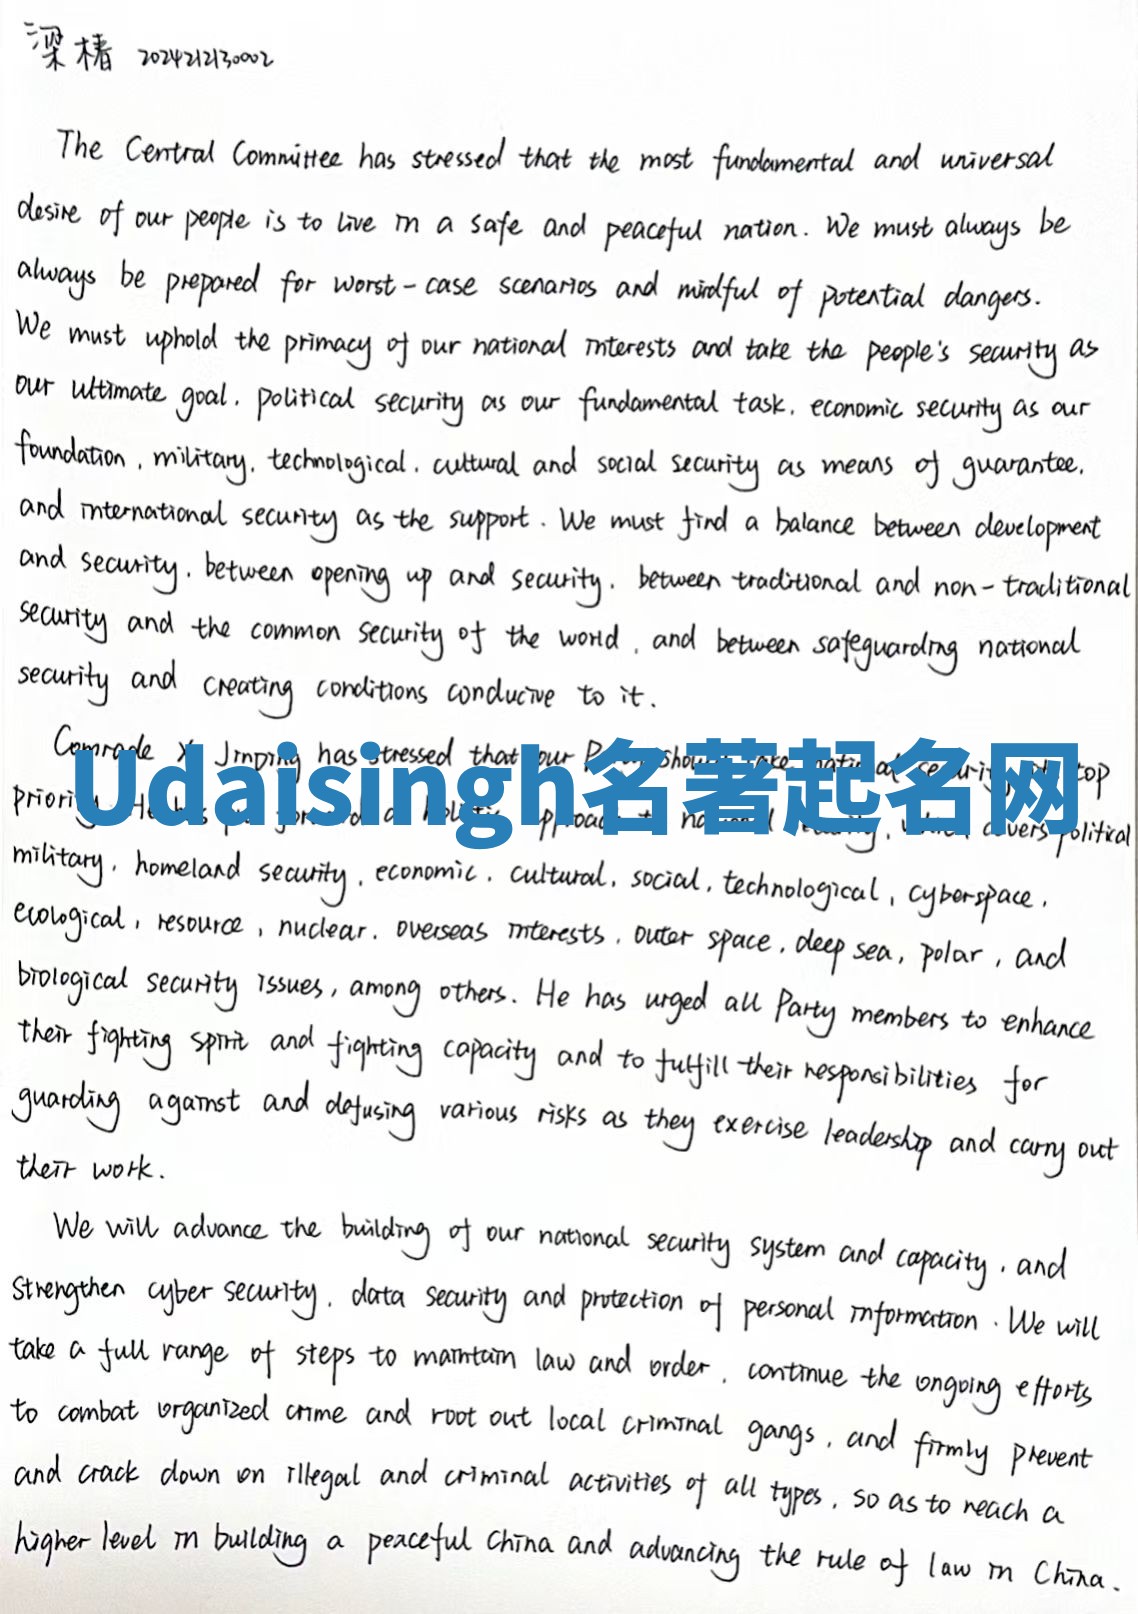 梁椿 2024212130002
The Central Committee has stressed that the most fundamental and universal
desire of our people is to live in a safe and peaceful nation. We must always be
always be prepared for worst-case scenarios and mindful of potential dangers.
We must uphold the primacy of our national interests and take the people's security as
our ultimate goal, political security as our fundamental task, economic security as our
foundation, military, technological, cultural and social security as means of guarantee,
and international security as the support. We must find a balance between development
and security, between opening up and security, between traditional and non-traditional
security and the common security of the world, and between safeguarding national
security and creating conditions conducive to it.
Comrade Jinping has stressed that our should take national security top
Udaisingh名著起名网
priority. He a holistic approach to national security, which covers political
military, homeland security, economic, cultural, social, technological, cyberspace,
ecological, resource, nuclear, overseas interests, outer space, deep sea, polar, and
biological security issues, among others. He has urged all Party members to enhance
their fighting spirit and fighting capacity and to fulfill their responsibilities for
guarding against and defusing various risks as they exercise leadership and carry out
their work.
We will advance the building of our national security system and capacity, and
strengthen cyber security, data security and protection of personal information. We will
take a full range of steps to maintain law and order, continue the ongoing efforts
to combat organized crime and root out local criminal gangs, and firmly prevent
and crack down on illegal and criminal activities of all types, so as to reach a
higher level in building a peaceful China and advancing the rule of law in China.